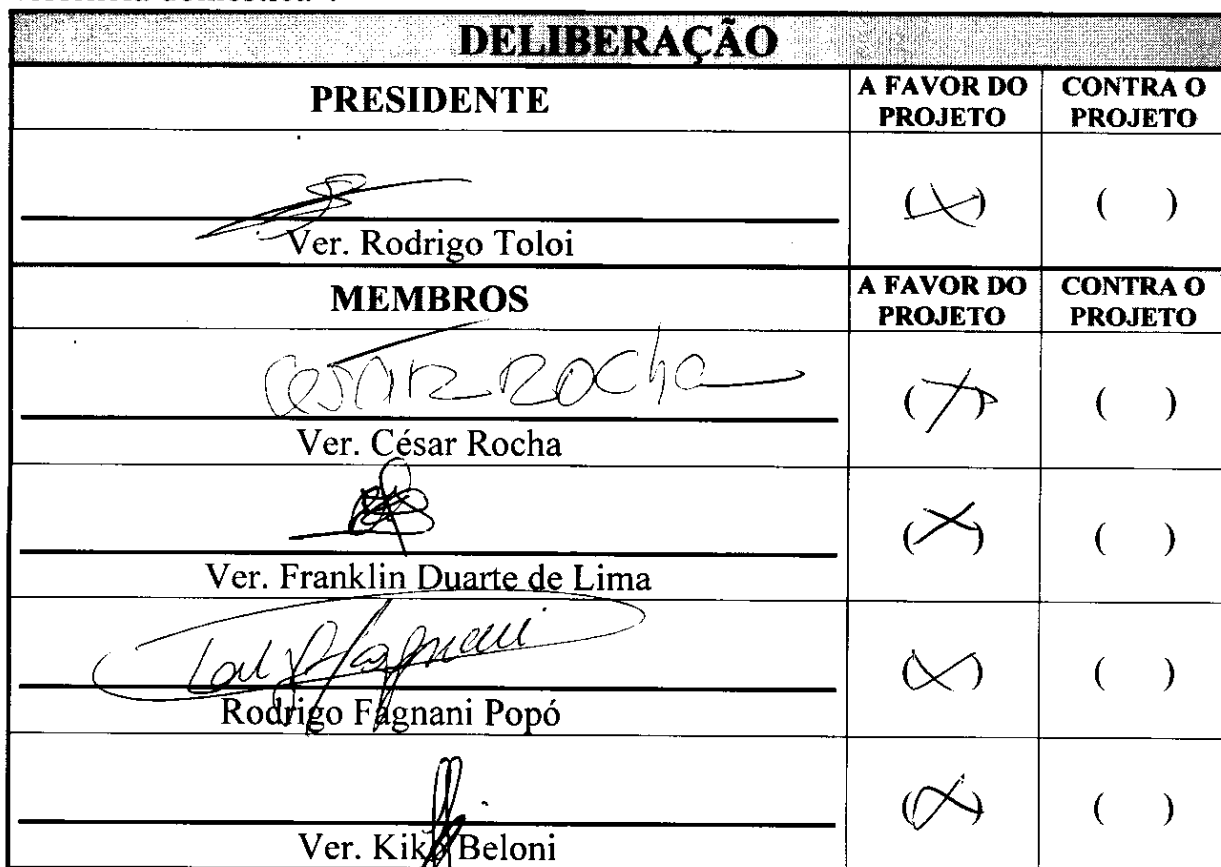 DELIBERAÇÃO
PRESIDENTE
A FAVOR DO PROJETO
CONTRA O PROJETO
(X)
( )
Ver. Rodrigo Toloi
MEMBROS
A FAVOR DO PROJETO
CONTRA O PROJETO
CESAR ROCha
(X)
( )
Ver. César Rocha
(X)
( )
Ver. Franklin Duarte de Lima
Fagnani
(X)
( )
Rodrigo Fagnani Popó
(X)
( )
Ver. Kiko Beloni